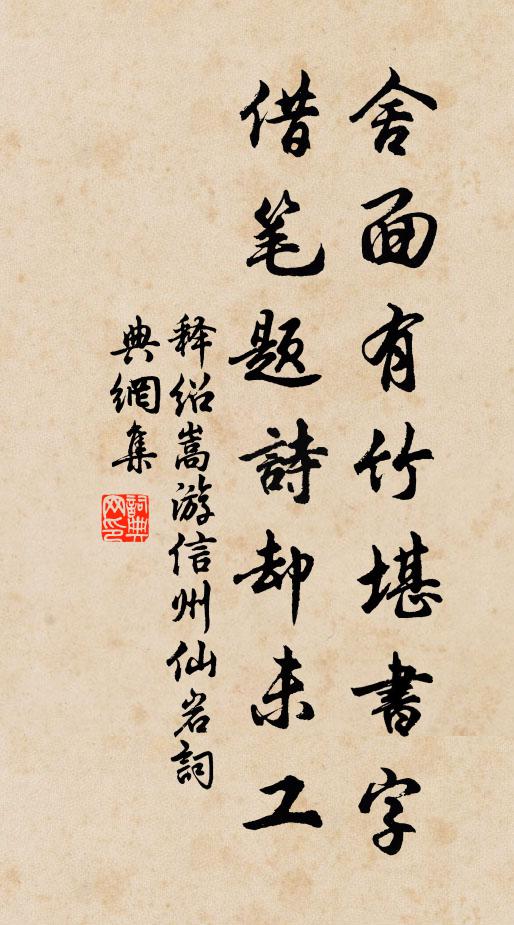 舍面有竹堪書字
借笔题詩却未工
释绍嵩游信州仙岩詞
典網集
詞典
网印